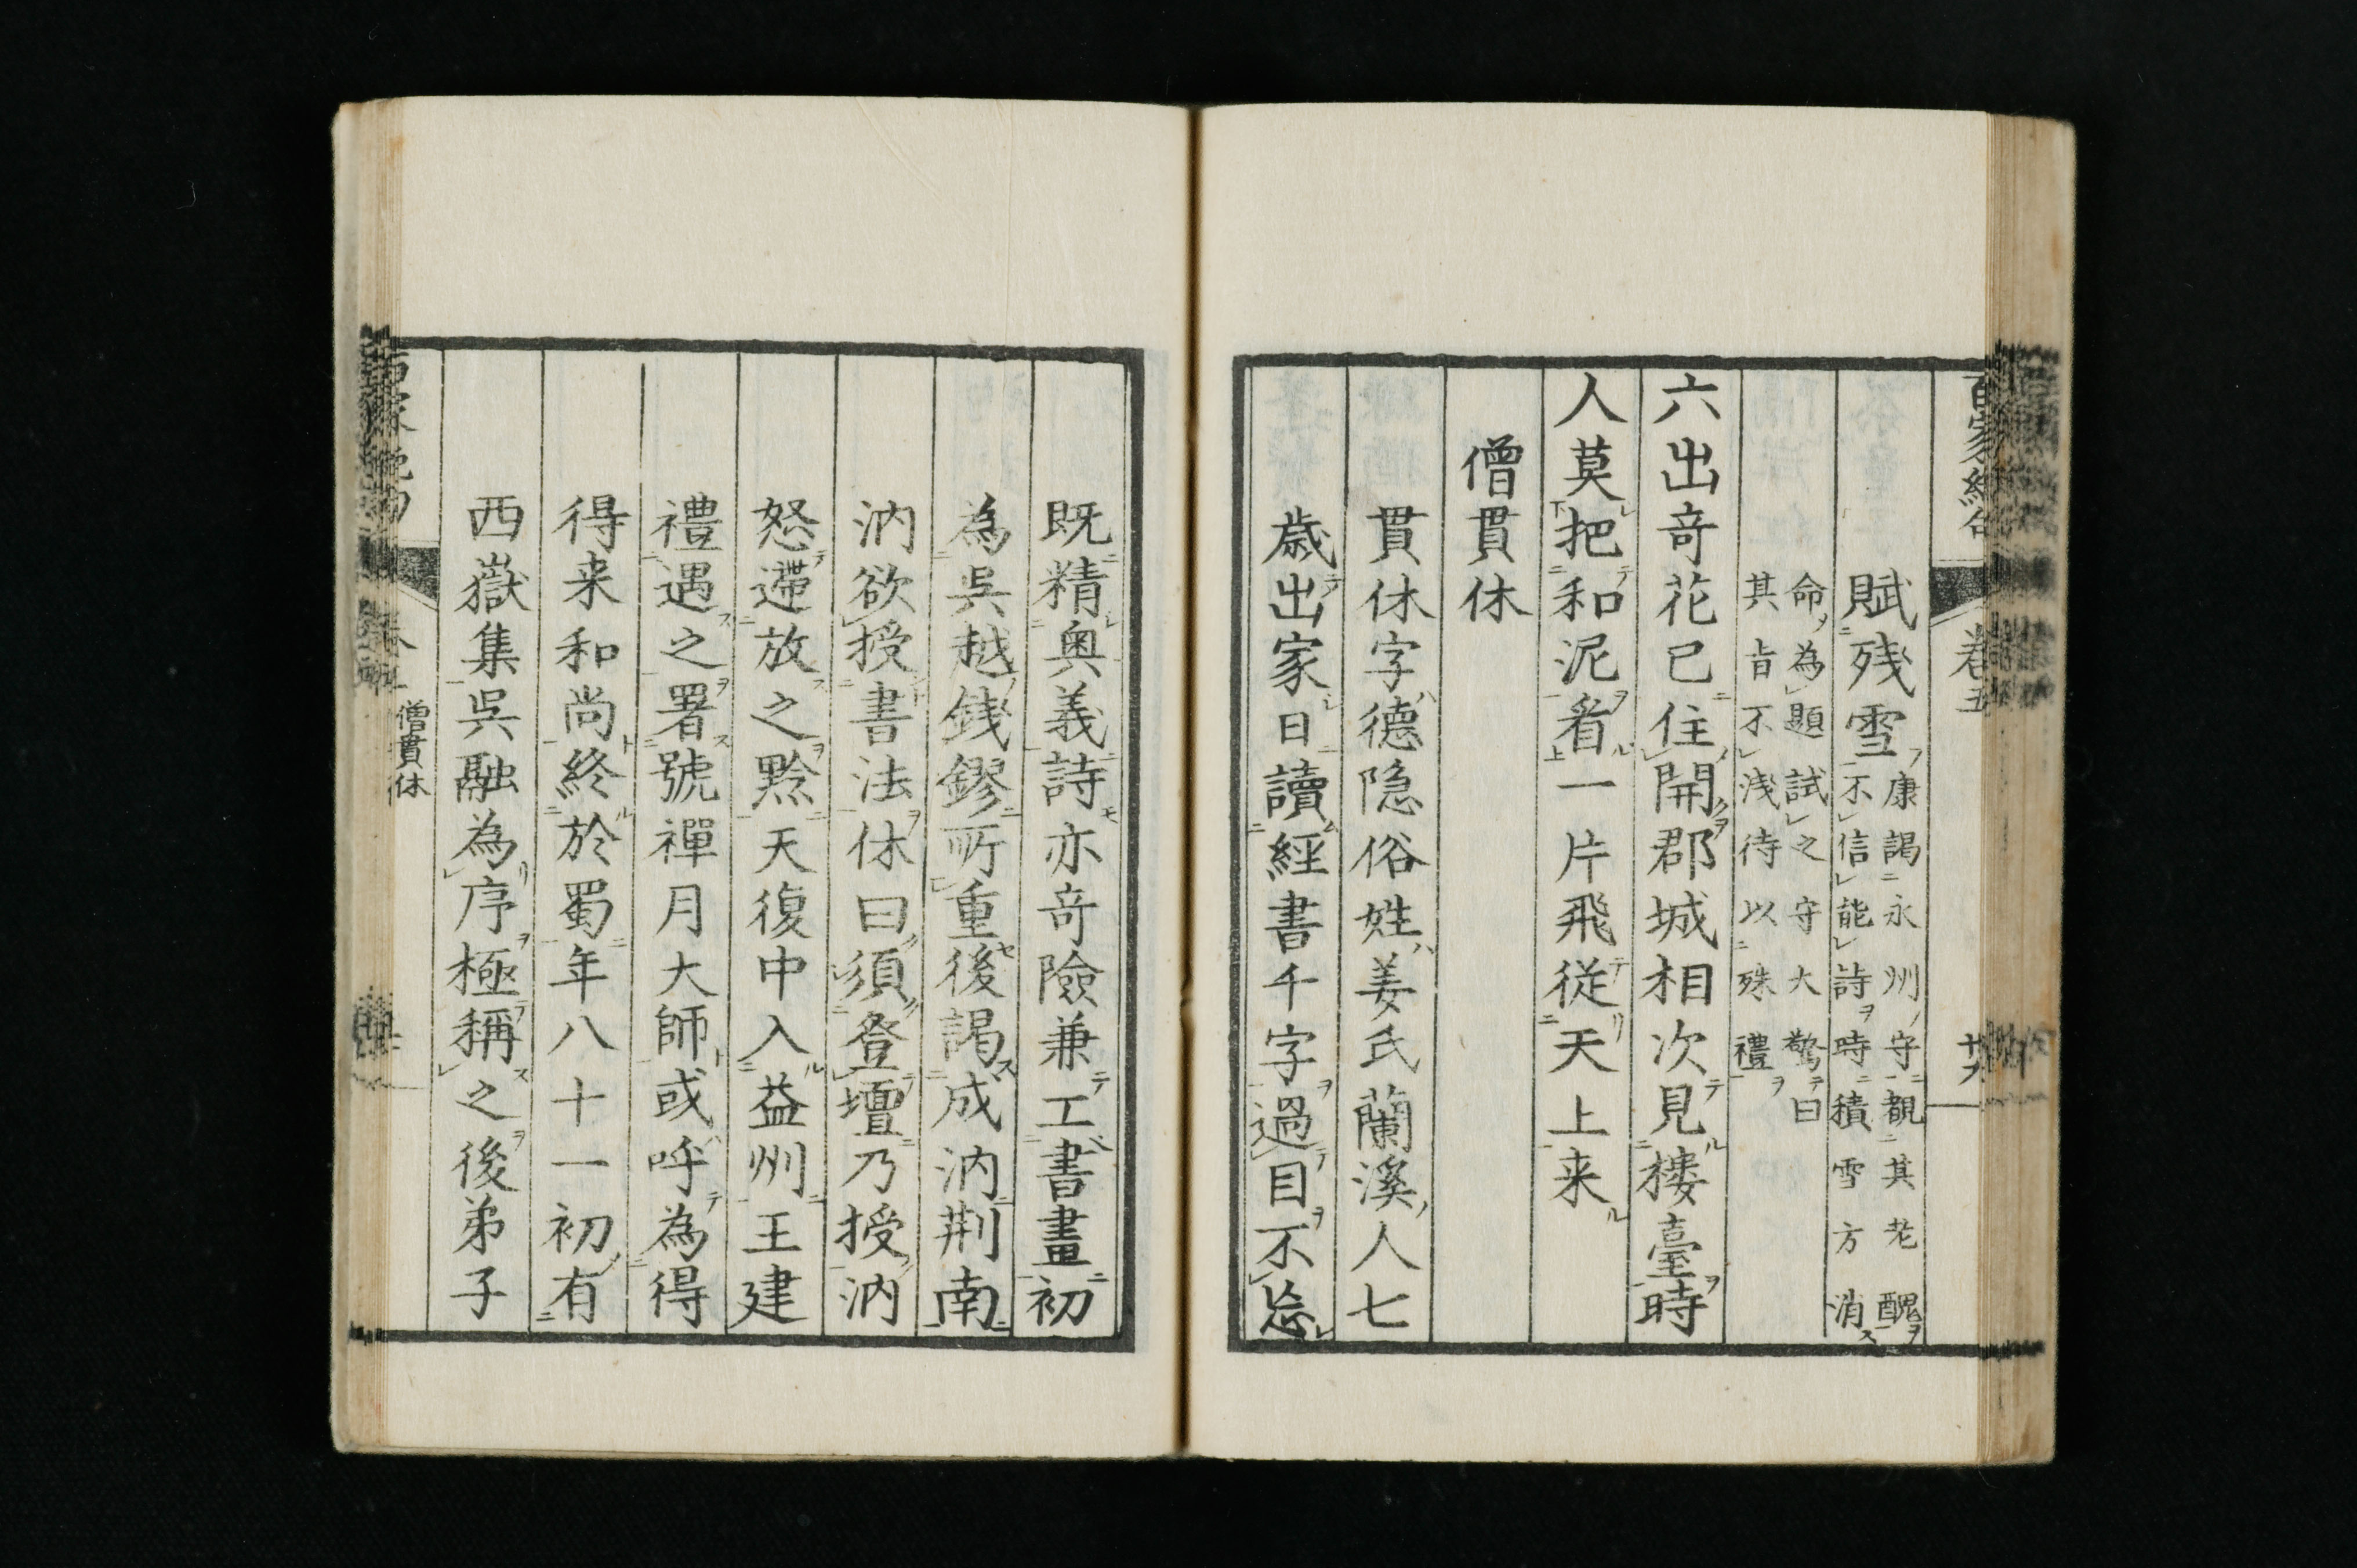 百家絶句 卷五 廿六
賦残雪
康謁永州守覩其老醜
不信能詩時積雪方消
命為題試之守大驚曰
其旨不淺待以殊禮
六出竒花已住開郡城相次見樓臺時
人莫把和泥看一片飛従天上来
僧貫休
貫休字德隐俗姓姜氏蘭溪人七
歳出家日讀經書千字過目不忘
既精奥義詩亦竒險兼工書畫初
為呉越錢鏐所重後謁成汭荆南
汭欲授書法休曰須登壇乃授汭
怒遞放之黔天復中入益州王建
禮遇之署號禪月大師或呼為得
得来和尚終於蜀年八十一初有
西嶽集呉融為序極稱之後弟子
僧貫休